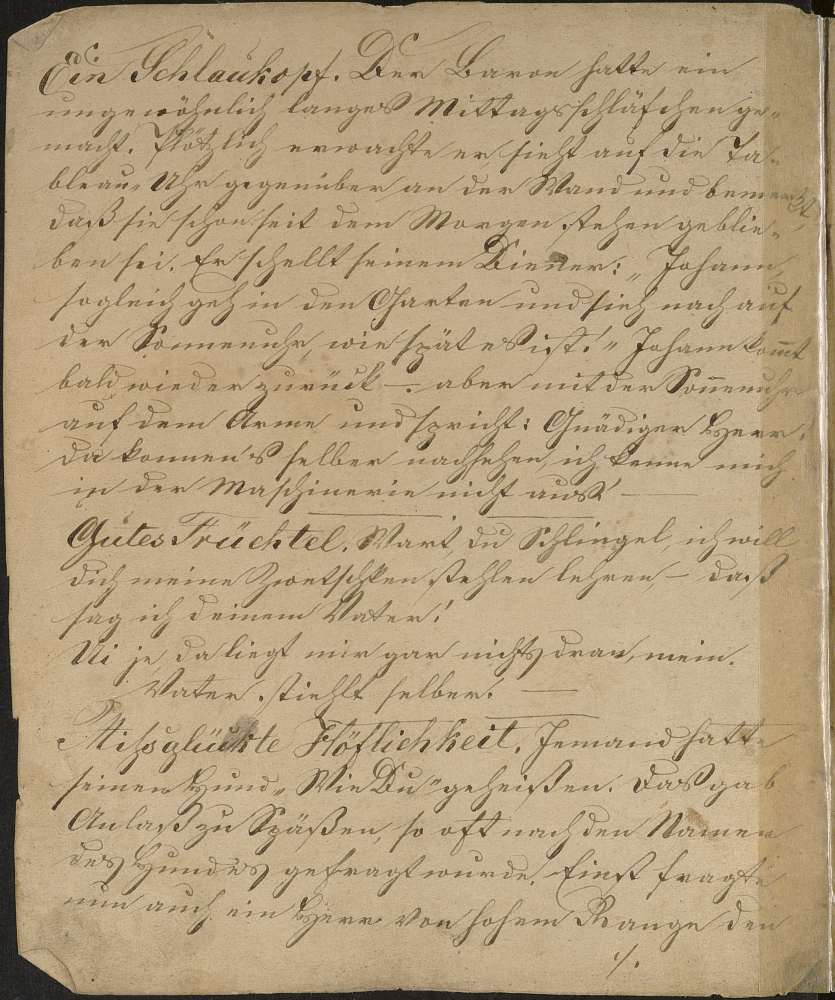 Ein Schlaukopf. Der Baron hatte ein
ungewöhnlich langes Mittagsschläfchen ge-
macht. Plötzlich erwachte er sieht auf die Ta-
bleau-Uhr gegenüber an der Wand und bemerkt,
daß sie schon seit dem Morgen stehen geblie-
ben sei. Er schellt seinem Diener: „Johann,
sogleich geh in den Garten und sieh nach auf
der Sonnenuhr, wie spät es ist!" Johann kom̅t
bald wieder zurück – aber mit der Son̅enuhr
auf dem Arme und spricht: Gnädiger Herr,
da konnen's selber nachsehen, ich kenne mich
in der Maschinerie nicht aus! —
Gutes Früchtel. Wart, du Schlingel, ich will
dich meine Zwetschken stehlen lehren, – daß
sag ich deinem Vater!
Ui je, da liegt mir gar nichts dran, mein
Vater stiehlt selber. —
Missglückte Höflichkeit. Jemand hatte
seinen Hund „Wie Du" geheißen. Das gab
Anlaß zu Späßen, so oft nach den Namen
des Hundes gefragt wurde. Einst fragte
nun auch ein Herr von hohem Range den
./.